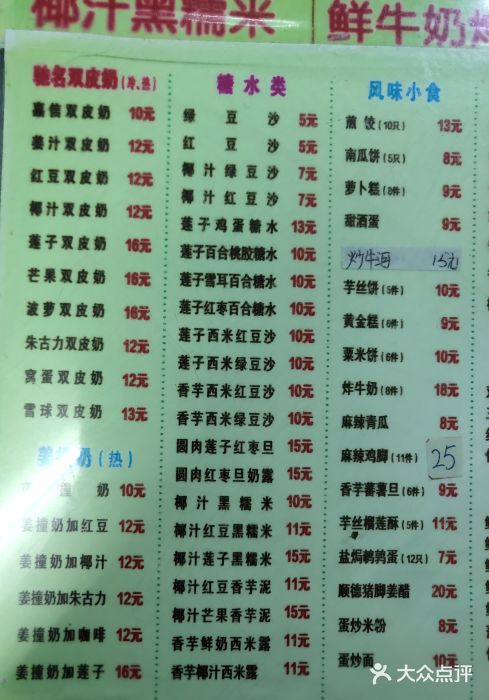 椰汁黑糯米
鲜牛奶
驰名双皮奶(冷、热)
嘉信双皮奶 10元
姜汁双皮奶 12元
红豆双皮奶 12元
椰汁双皮奶 12元
莲子双皮奶 16元
芒果双皮奶 16元
菠萝双皮奶 16元
朱古力双皮奶 12元
窝蛋双皮奶 12元
雪球双皮奶 13元
姜撞奶(热)
撞奶 10元
姜撞奶加红豆 12元
姜撞奶加椰汁 12元
姜撞奶加朱古力 12元
姜撞奶加咖啡 12元
姜撞奶加莲子 16元
糖水类
绿豆沙 5元
红豆沙 5元
椰汁绿豆沙 7元
椰汁红豆沙 7元
莲子鸡蛋糖水 13元
莲子百合桃胶糖水 10元
莲子雪耳百合糖水 10元
莲子红枣百合糖水 10元
莲子西米红豆沙 10元
莲子西米绿豆沙 10元
香芋西米红豆沙 10元
香芋西米绿豆沙 10元
圆肉莲子红枣旦 15元
圆肉红枣旦奶露 15元
椰汁黑糯米 10元
椰汁红豆黑糯米 11元
椰汁莲子黑糯米 15元
椰汁红豆香芋泥 11元
椰汁芒果香芋泥 15元
香芋鲜奶西米露 11元
香芋椰汁西米露 11元
风味小食
煎饺(10只) 13元
南瓜饼(5只) 8元
萝卜糕(8件) 9元
甜酒蛋 9元
炒牛河 15元
芋丝饼(5件) 10元
黄金糕(6件) 9元
粟米饼(6件) 10元
炸牛奶(8件) 18元
麻辣青瓜 8元
麻辣鸡脚(11件) 25
香芋蕃薯旦(6件) 9元
芋丝榴莲酥(5件) 11元
盐焗鹌鹑蛋(12只) 7元
顺德猪脚姜醋 20元
蛋炒米粉 8元
蛋炒面 10元
大众点评